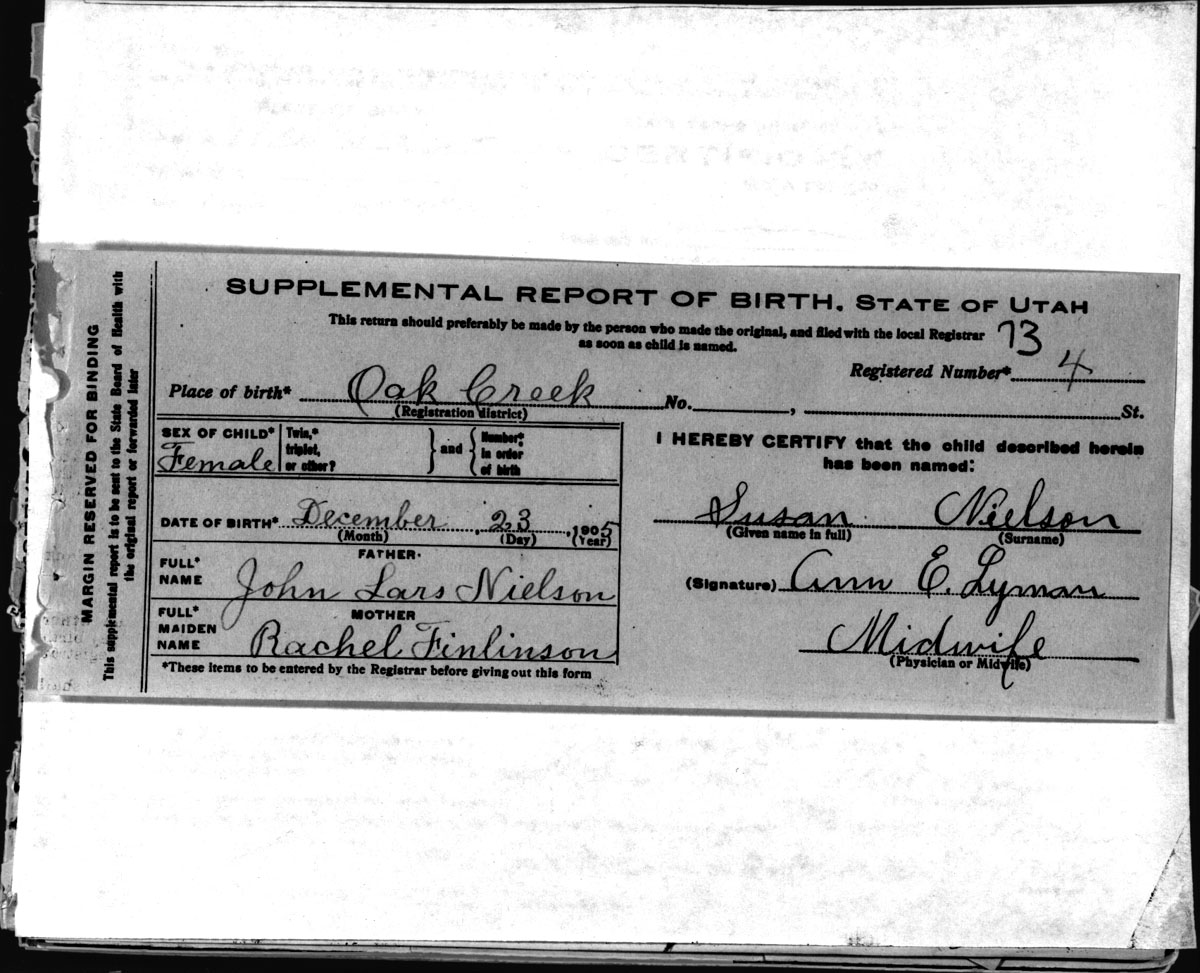 SUPPLEMENTAL REPORT OF BIRTH. STATE OF UTAH
This return should preferably be made by the person who made the original, and filed with the local Registrar
as soon as child is named.
73
Registered Number* 4
Place of birth* Oak Creek No. , St.
(Registration district)
SEX OF CHILD* Female
Twin,* triplet, or other? } and { Number* in order of birth
DATE OF BIRTH* December 23, 1905
(Month) (Day) (Year)
FATHER.
FULL* NAME John Lars Nielson
MOTHER
FULL* MAIDEN NAME Rachel Finlinson
*These items to be entered by the Registrar before giving out this form
I HEREBY CERTIFY that the child described herein
has been named:
Susan Nielson
(Given name in full) (Surname)
(Signature) Ann E. Lyman
Midwife
(Physician or Midwife)
MARGIN RESERVED FOR BINDING
This supplemental report is to be sent to the State Board of Health with
the original report or forwarded later